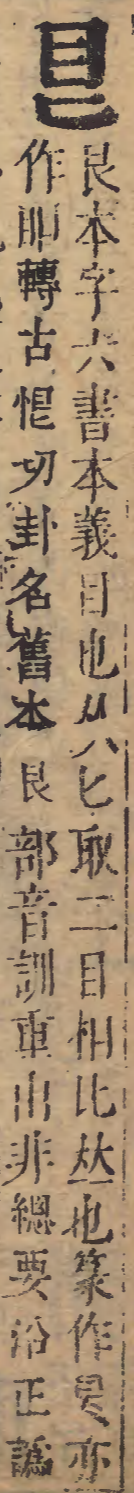 𥃩
艮本字六書本義目也从八匕取二目相比𠀤也篆作𥃩亦
作卽轉古恨切卦名舊本艮部音訓重出非總要沿正譌